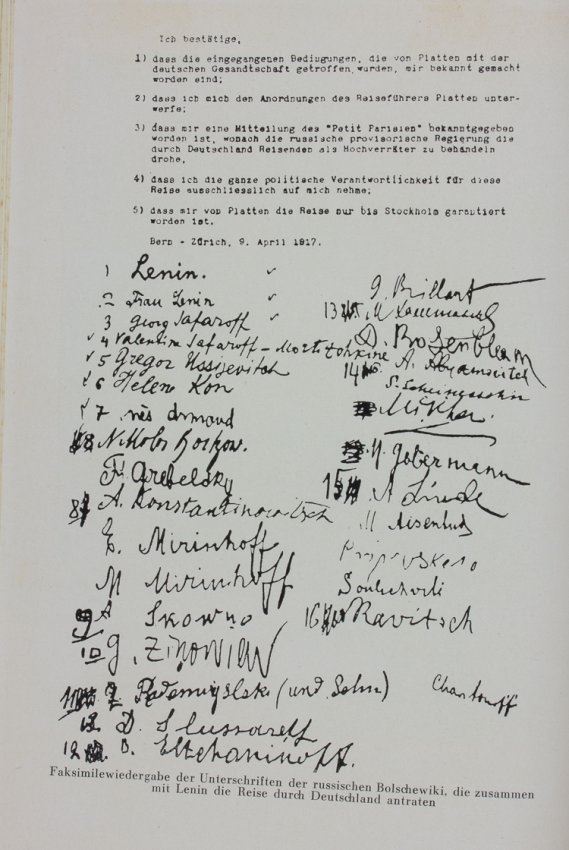 Ich bestätige,
1) dass die eingegangenen Bedingungen, die von Platten mit der
deutschen Gesandtschaft getroffen wurden, mir bekannt gemacht
worden sind;
2) dass ich mich den Anordnungen des Reiseführers Platten unter-
werfe;
3) dass mir eine Mitteilung des "Petit Parisien" bekanntgegeben
worden ist, wonach die russische provisorische Regierung die
durch Deutschland Reisenden als Hochverräter zu behandeln
drohe,
4) dass ich die ganze politische Verantwortlichkeit für diese
Reise ausschliesslich auf mich nehme;
5) dass mir von Platten die Reise nur bis Stockholm garantiert
worden ist.
Bern - Zürich, 9. April 1917.
1 Lenin.
2 Frau Lenin
3 Georg Safaroff
4 Valentina Safaroff - Mortotchkine
5 Gregor Ussijevitch
6 Helene Kon
7 Inès Armand
8 Nikolai Boitzow.
F. Grebelsky
A. Konstantinowitsch
E. Mirinhoff
M Mirinhoff
9 A Skowno
10 G. Zinowiew
Radomyslski (und Sohn)
D. Slussareff
12 B. Eltchaninoff.
G. Brillant
13
D. Rosenblum
14 A. Abramowitch
S. Scheinessohn
M. Gobermann
15 A Linde
M Aisenbud
Pripevskeio
Soulischvili
16 Ravitsch
Charitonoff
Faksimilewiedergabe der Unterschriften der russischen Bolschewiki, die zusammen
mit Lenin die Reise durch Deutschland antraten